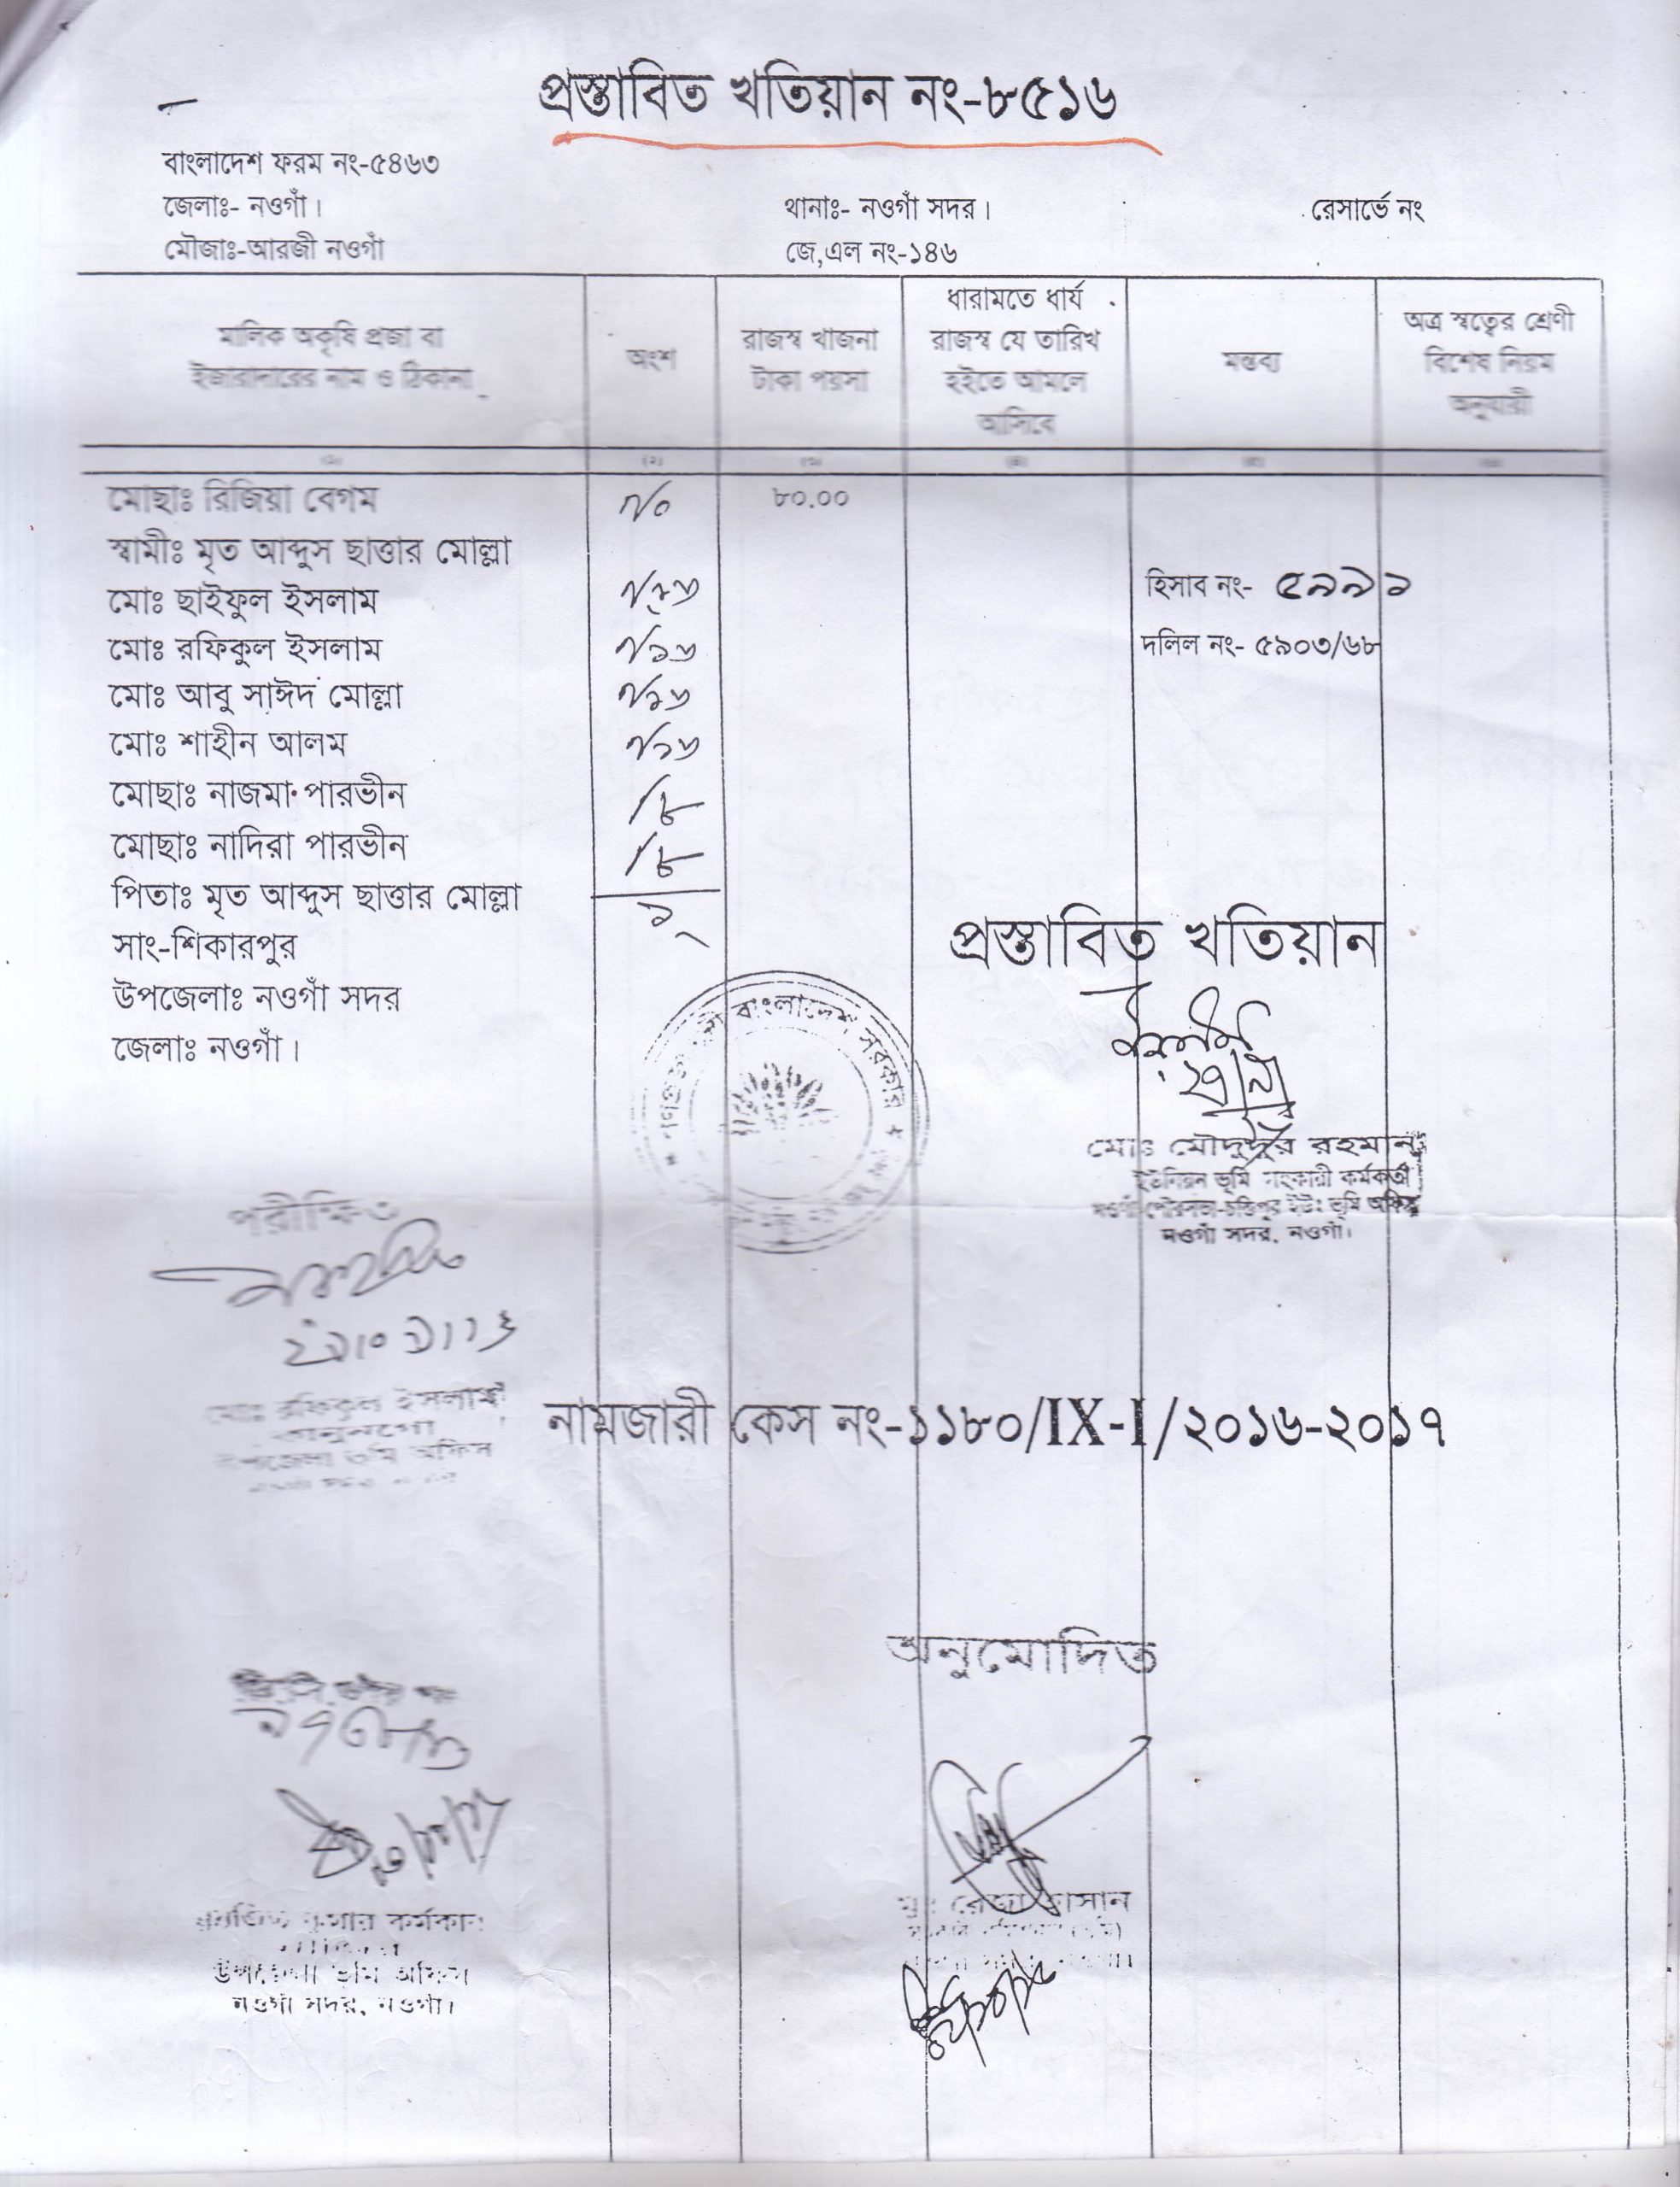 প্রস্তাবিত খতিয়ান নং-৮৫১৬
বাংলাদেশ ফরম নং-৫৪৬৩
জেলাঃ- নওগাঁ।
থানাঃ- নওগাঁ সদর।
রেসার্ভে নং
মৌজাঃ-আরজী নওগাঁ
জে,এল নং-১৪৬
মালিক অকৃষি প্রজা বা
ইজারাদারের নাম ও ঠিকানা
অংশ
রাজস্ব খাজনা
টাকা পয়সা
ধারামতে ধার্য
রাজস্ব যে তারিখ
হইতে আমলে
আসিবে
মন্তব্য
অত্র স্বত্বের শ্রেণী
বিশেষ নিয়ম
অনুযায়ী
মোছাঃ রিজিয়া বেগম
৮০.০০
স্বামীঃ মৃত আব্দুস ছাত্তার মোল্লা
মোঃ ছাইফুল ইসলাম
হিসাব নং- ৫৯৯১
মোঃ রফিকুল ইসলাম
দলিল নং- ৫৯০৩/৬৮
মোঃ আবু সাঈদ মোল্লা
মোঃ শাহীন আলম
মোছাঃ নাজমা পারভীন
মোছাঃ নাদিরা পারভীন
পিতাঃ মৃত আব্দুস ছাত্তার মোল্লা
সাং-শিকারপুর
উপজেলাঃ নওগাঁ সদর
জেলাঃ নওগাঁ।
প্রস্তাবিত খতিয়ান
বাংলাদেশ সরকার
মোঃ মৌদুদুর রহমান
ইউনিয়ন ভূমি সহকারী কর্মকর্তা
নওগাঁ পৌরসভা-চন্ডিপুর ইউঃ ভূমি অফিস
নওগাঁ সদর, নওগাঁ।
পরীক্ষিত
মোঃ রফিকুল ইসলাম
কানুনগো
উপজেলা ভূমি অফিস
নামজারী কেস নং-১১৮০/IX-I/২০১৬-২০১৭
অনুমোদিত
কুমার কর্মকার
উপজেলা ভূমি অফিস
নওগাঁ সদর, নওগাঁ।
মুঃ রেজা হাসান